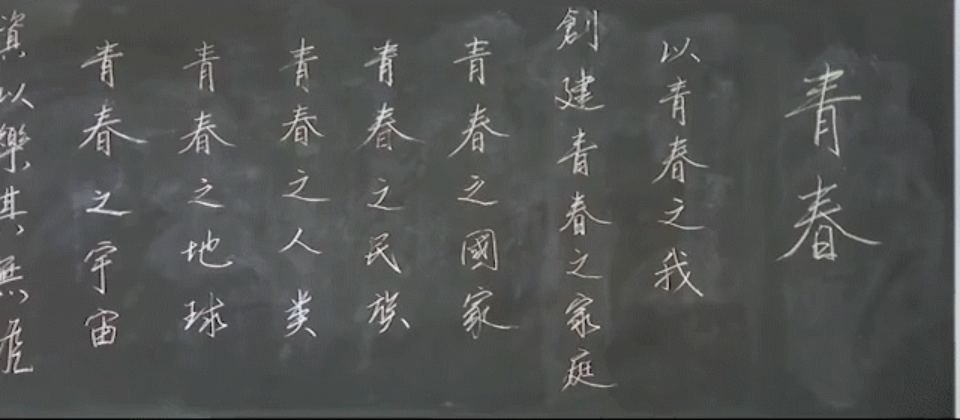 青春
以青春之我
創建青春之家庭
青春之國家
青春之民族
青春之人类
青春之地球
青春之宇宙
資以樂其無